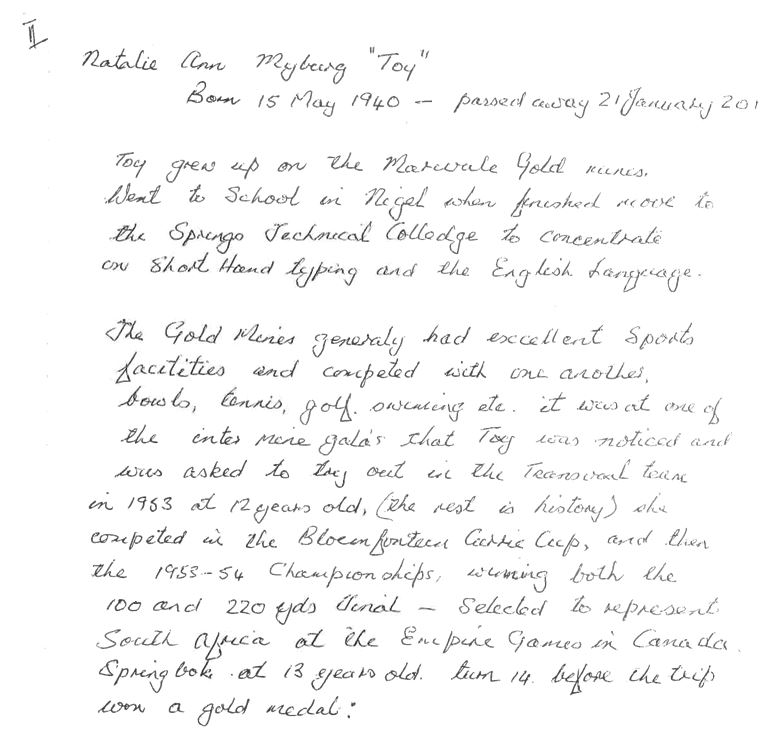 II
Natalie Ann Myburg "Toy"
Born 15 May 1940 – passed away 21 January 201
Toy grew up on the Marivale Gold mines.
Went to School in Nigel when finished move to
the Springs Technical Colledge to concentrate
on Short Hand typing and the English Language.
The Gold Mines generaly had excellent Sports
facilities and competed with one another,
bowls, tennis, golf. swimming etc. it was at one of
the inter mine gala's that Toy was noticed and
was asked to try out in the Transvaal team
in 1953 at 12 years old, (the rest is history) she
competed in the Bloemfonteen Currie Cup, and then
the 1953-54 Championships, winning both the
100 and 220 yds Final – Selected to represent
South Africa at the Empire Games in Canada.
Springbok at 13 years old. turn 14 before the trip
won a gold medal: